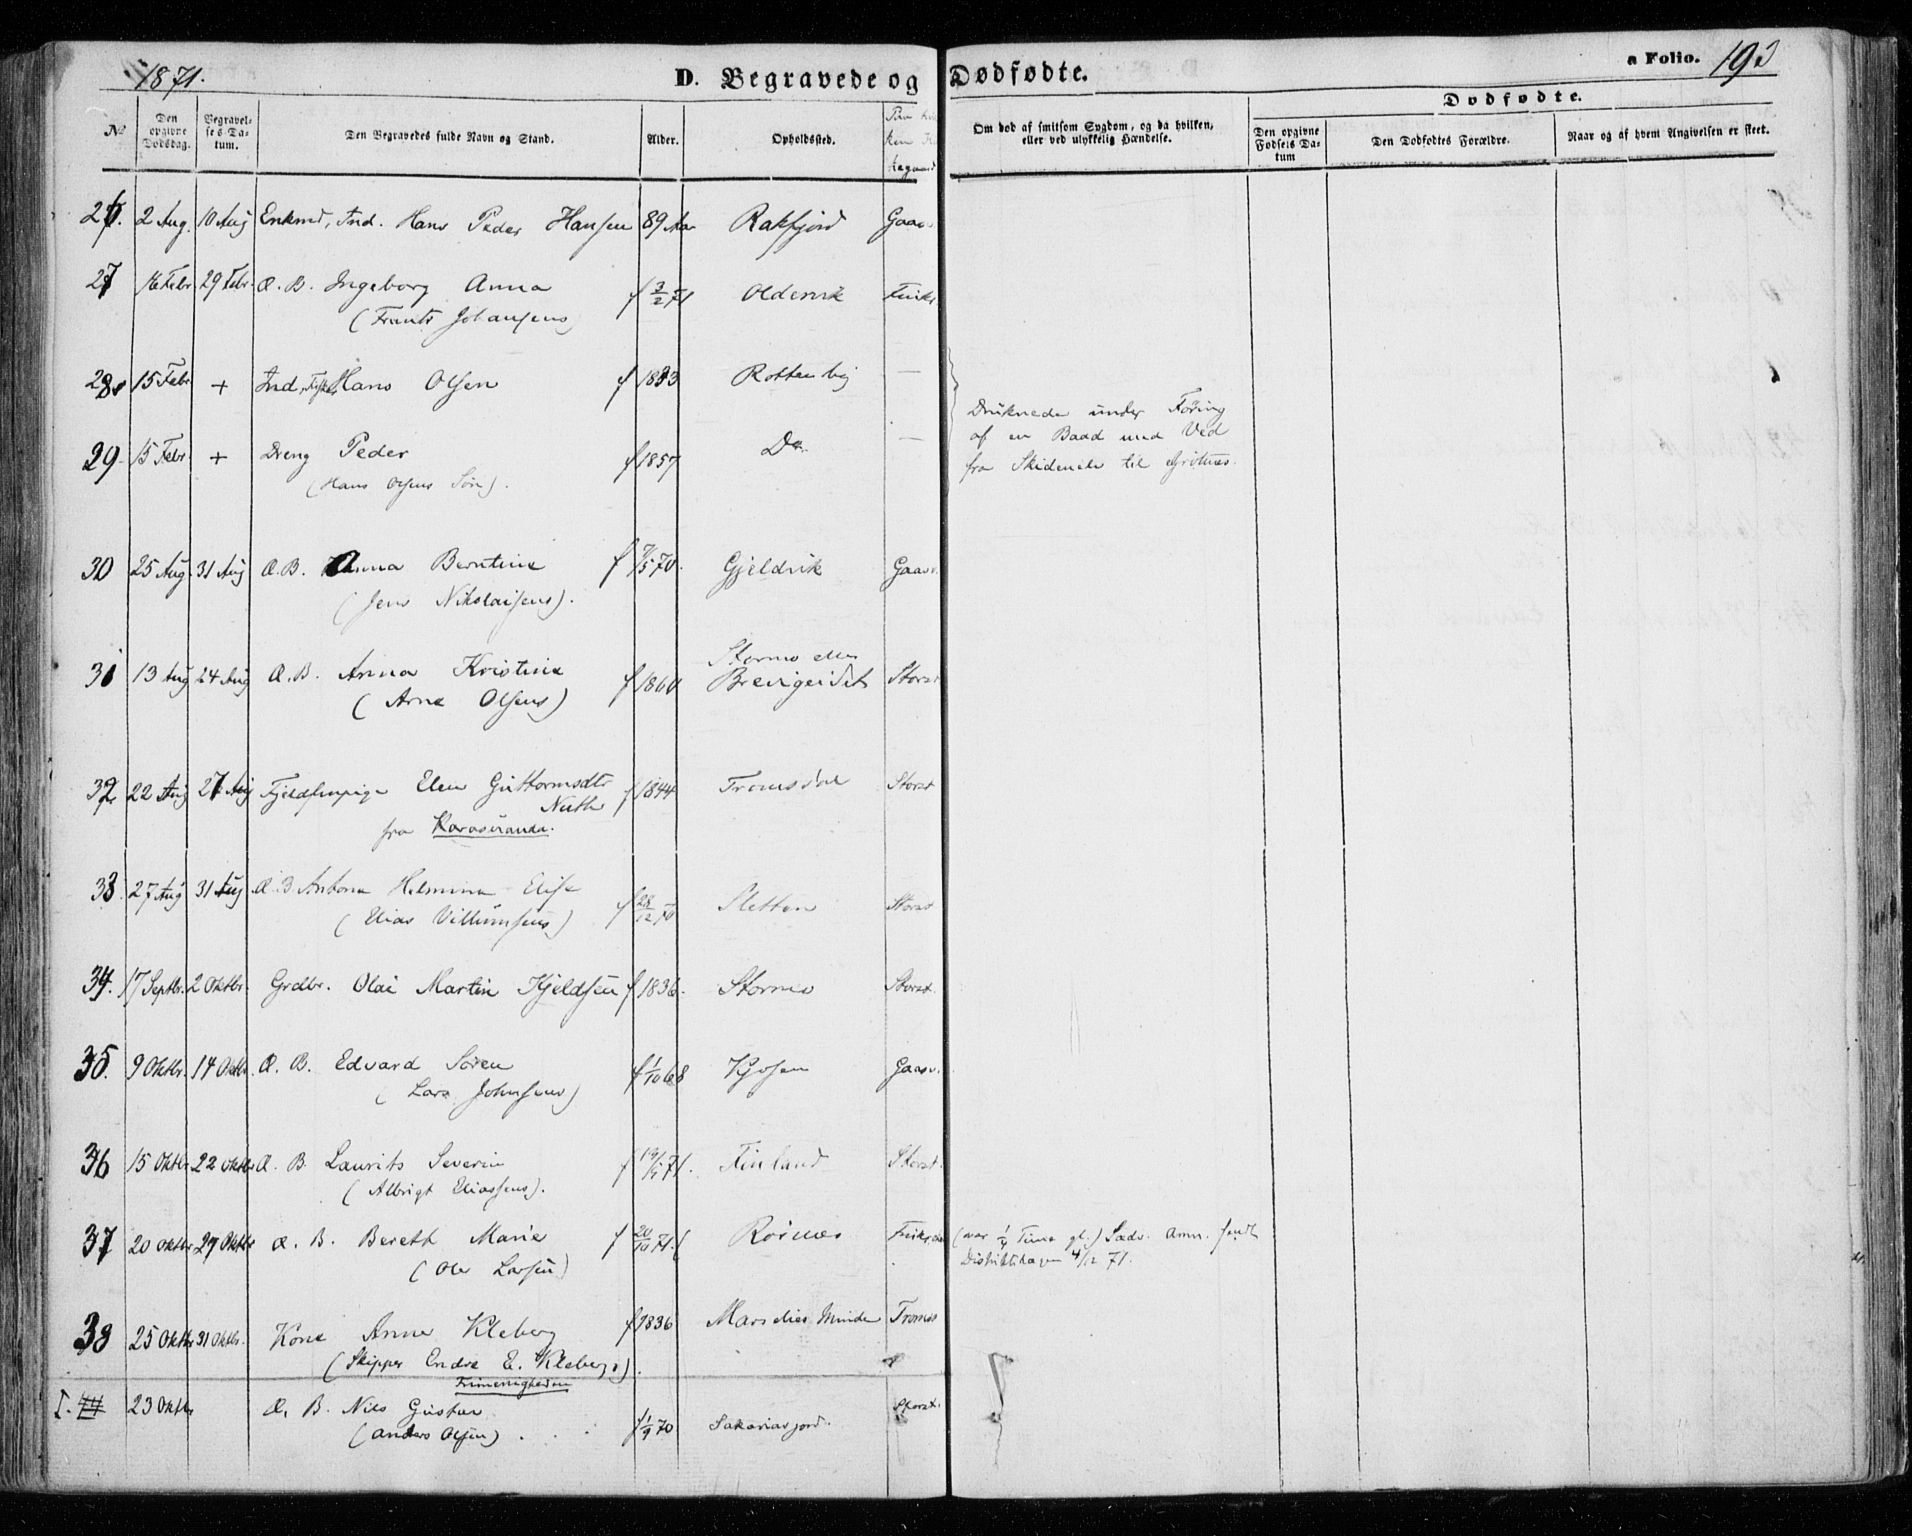 1871.
D. Begravede og Dødfødte.
a Folio. 193
No
Den opgivne Dødsdag.
Begravelses Datum.
Den Begravedes fulde Navn og Stand.
Alder.
Opholdssted.
Om død af smitsom Sygdom, og da hvilken, eller ved ulykkelig Hændelse.
Dødfødte.
Den opgivne Fødsels Datum
Den Dødfødtes Forældre.
Naar og af hvem Angivelsen er skeet.
26. 2 Aug. 10 Aug Enkmd, Ind. Hans Peder Hansen 89 Aar Rakfjord Gaasv.
27 16 Febr 29 Febr. Æ. B. Ingeborg Anna f 3/2 71 Oldervik Finkr
(Frants Johansens)
28. 15 Febr. + Ind, Hans Olsen f 1833 Rottenvig —
29. 15 Febr. + Dreng Peder f 1857 Do —
(Hans Olsens Søn).
Druknede under Føring
af en Baad med Ved
fra Skidenelv til Grötnes.
30 25 Aug. 31 Aug Æ. B. Anna Berntine f 7/5 70. Gjeldvik Gaasv.
(Jens Nikolaisens).
31 13 Aug 24 Aug Æ. B. Anna Kristine f 1860 Stormo eller
Breivigeidet Storst
(Arne Olsens)
32 22 Aug 27 Aug Fjeldfinpige Elen Guttormsdtr f 1844 Tromsdal Storst
fra Karasuando.
33. 27 Aug 31 Aug Æ. B. Antona Helmina Elise f 28/12 70 Sletten Storst
(Elias Villumsens)
34. 17 Septbr. 2 Oktbr. Grdbr. Olai Martin Kjeldsen f 1836. Stormo Storst.
35. 9 Oktbr. 14 Oktbr. Æ. B. Edvard Sören f 1/10 68 Kjosen Gaasv.
(Lars Johnsens)
36 15 Oktbr 22 Oktbr Æ. B. Laurits Severin 71. Finland Storst.
(Albrigt Eliassens).
37 20 Oktbr 29 Oktbr Æ. B. Bereth Marie f 20/10 71. Rösnes
(Ole Larsen)
(var 1/4 Time gl.) Sædv. Anm. sendt
4/12 71.
38 25 Oktbr 31 Oktbr. Kone Anne Kleberg f 1836 Marselies Minde Tromsø
(Skipper Endre E. Klebergs).
Frimenigheden
I. 23 Oktbr Æ. B. Nils Gustav f 1/9 70 Sakariasjord. Storst.
(Anders Olsen)